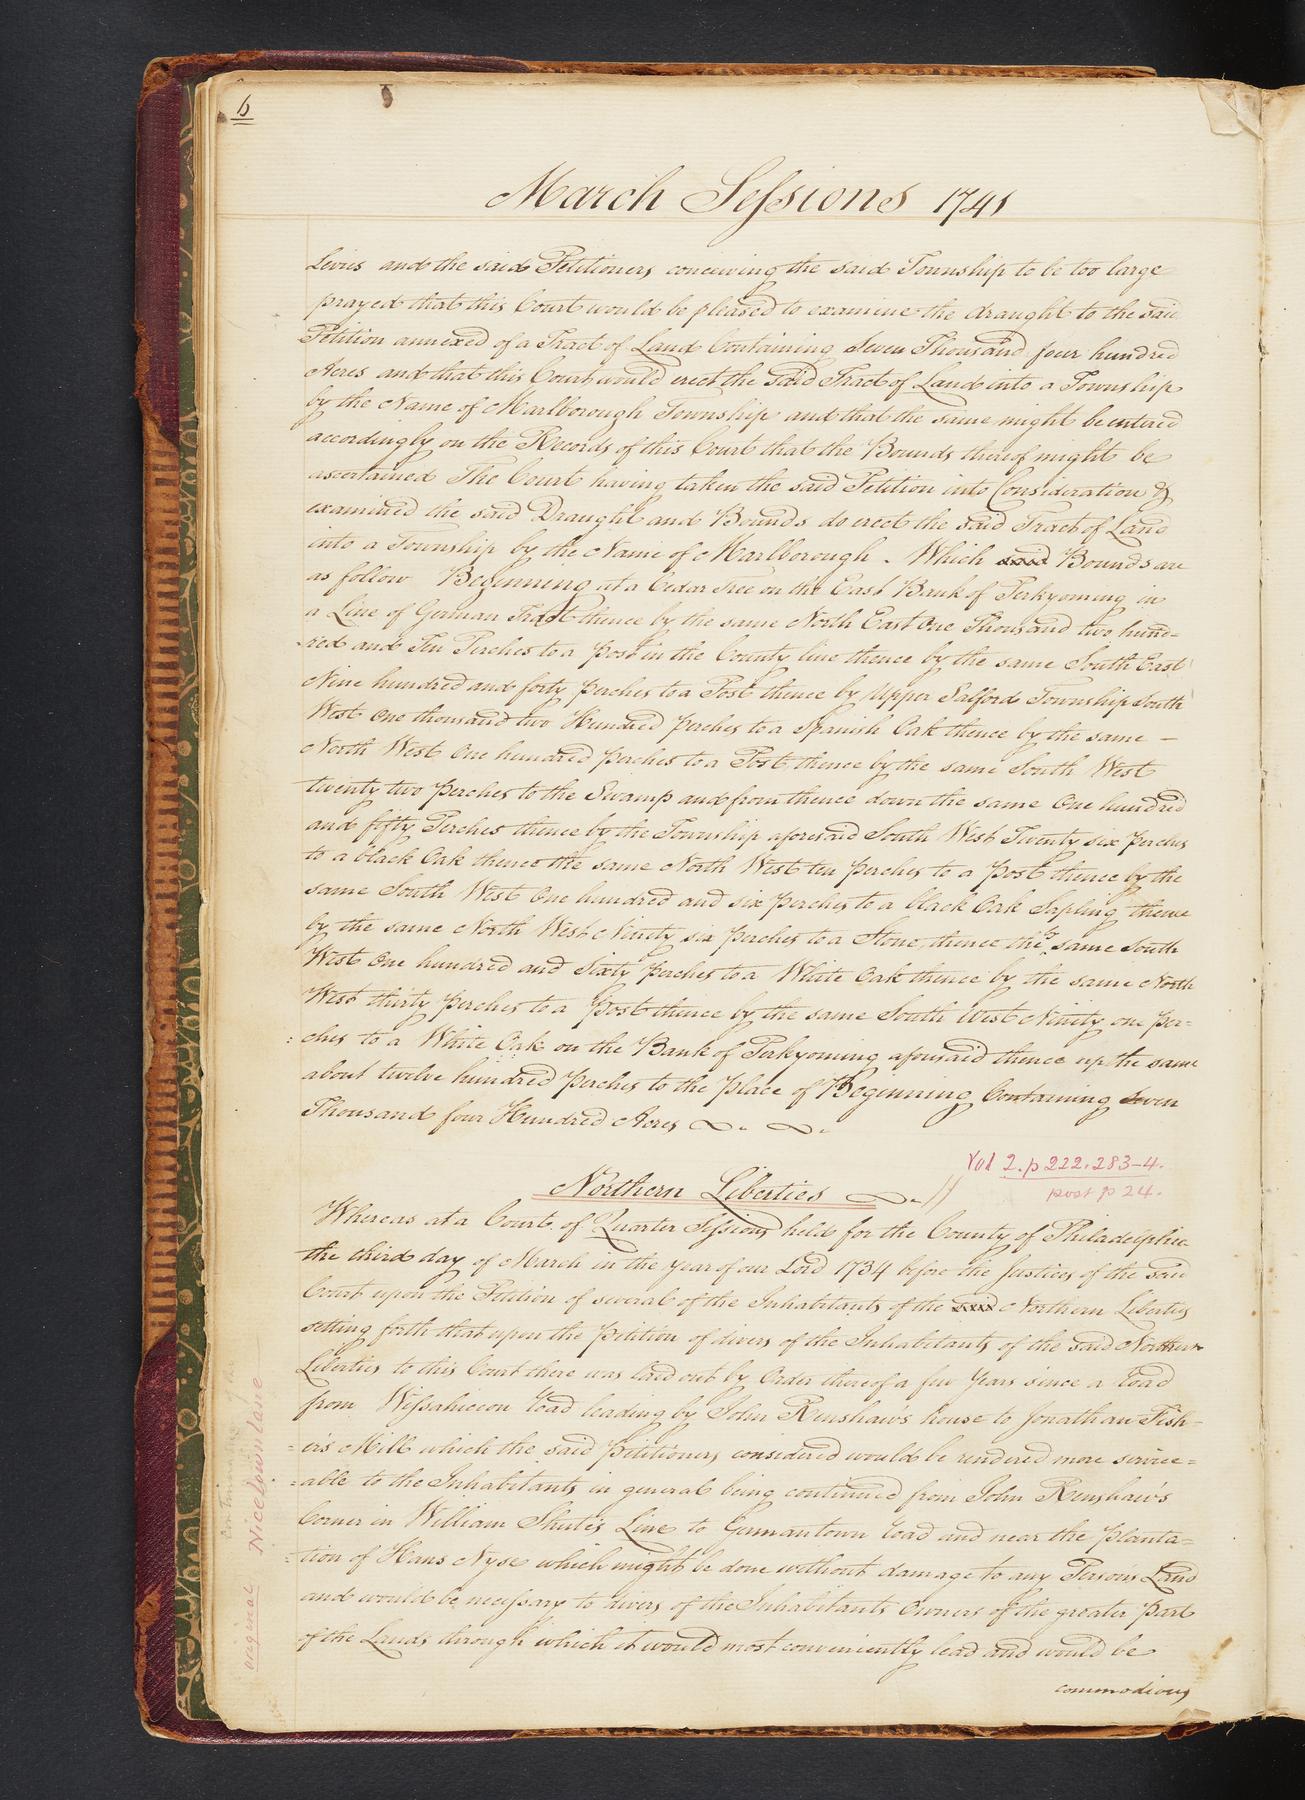 6
March Sessions 1741
Levies and the said Petitioners conceiving the said Township to be too large
prayed that this Court would be pleased to examine the draught to the said
Petition annexed of a Tract of Land Containing Seven Thousand four hundred
Acres and that this Court would erect the said Tract of Land into a Township
by the Name of Marlborough Township and that the same might be entered
accordingly on the Records of this Court that the Bounds thereof might be
ascertained The Court having taken the said Petition into Consideration &
examined the said Draught and Bounds do erect the said Tract of Land
into a Township by the Name of Marlborough. Which said Bounds are
as follow Beginning at a Cedar Tree on the East Bank of Perkyoming in
a Line of German Tract thence by the same North East One Thousand two hund=
red and Ten Perches to a post in the County line thence by the same South East
Nine hundred and forty perches to a Post thence by Upper Salford Township South
West One thousand two Hundred perches to a Spanish Oak thence by the same –
North West One hundred perches to a Post thence by the same South West
twenty two perches to the Swamp and from thence down the same One hundred
and fifty Perches thence by the Township aforesaid South West Twenty six perches
to a black Oak thence the same North West ten perches to a post thence by the
same South West One hundred and six perches to a black Oak Sapling thence
by the same North West Ninety six perches to a Stone thence the same South
West One hundred and Sixty perches to a White Oak thence by the same North
West thirty perches to a post thence by the same South West Ninity one per=
ches to a White Oak on the Bank of Perkyoming aforesaid thence up the same
about twelve hundred perches to the place of Beginning Containing Seven
Thousand four Hundred Acres
Vol 2. p 222. 283-4.
post p 24.
Northern Liberties
Whereas at a Court of Quarter Sessions held for the County of Philadelphia
the third day of March in the year of our Lord 1734 before the Justices of the said
Court upon the Petition of several of the Inhabitants of the said Northern Liberties
setting forth that upon the petition of divers of the Inhabitants of the said Northern
Liberties to this Court there was laid out by Order thereof a few years since a Road
from Wissahiccon Road leading by John Renshaw's house to Jonathan Fish=
=er's Mill which the said petitioners considered would be rendered more service=
=able to the Inhabitants in general being continued from John Renshaw's
Corner in William Shute's Line to Germantown Road and near the planta=
=tion of Hans Nyse which might be done without damage to any Persons Land
and would be necessary to divers of the Inhabitants Owners of the greater part
of the Lands through which it would most conveniently lead and would be
commodious
original Nicetown lane